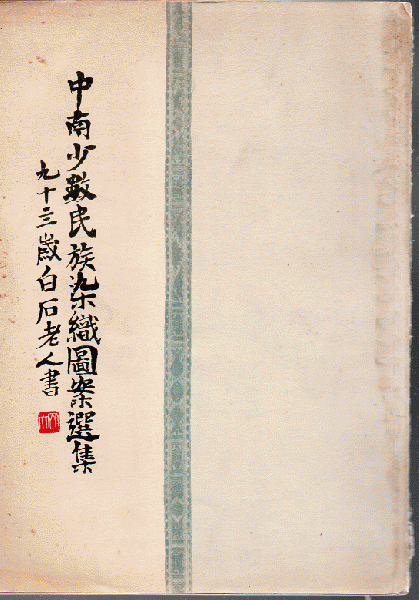 中南少數民族染織圖案選集
九十三歲白石老人書